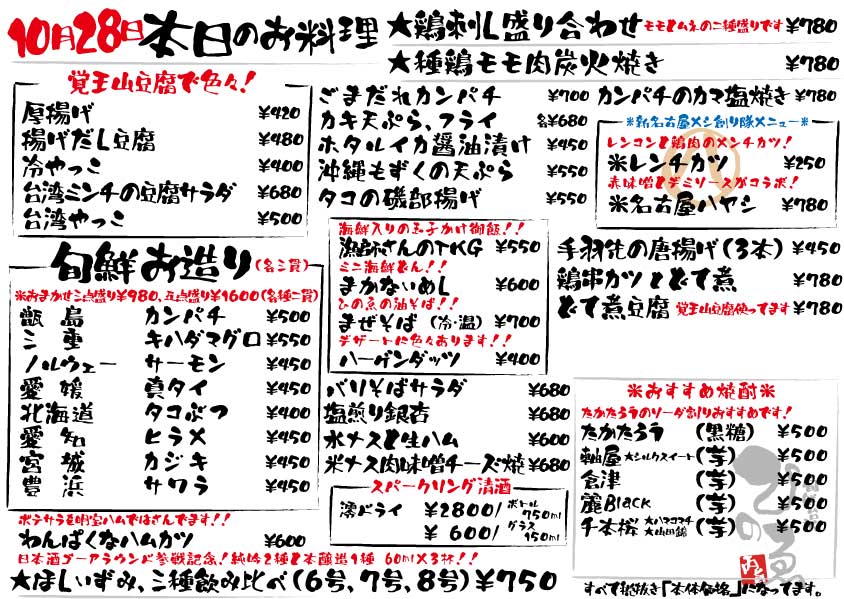 10月28日 本日のお料理
★鶏刺し盛り合わせ モモとムネの二種盛りです ¥780
★種鶏モモ肉炭火焼き ¥780
覚王山豆腐で色々!
厚揚げ ¥420
揚げだし豆腐 ¥480
冷やっこ ¥400
台湾ミンチの豆腐サラダ ¥680
台湾やっこ ¥500
ごまだれカンパチ ¥700
カキ天ぷら、フライ 各¥680
ホタルイカ醤油漬け ¥450
沖縄もずくの天ぷら ¥550
タコの磯部揚げ ¥550
カンパチのカマ塩焼き ¥780
※新名古屋メシ創り隊メニュー※
レンコンと鶏肉のメンチカツ!
米レンチカツ ¥250
赤味噌とデミソースがコラボ!
米名古屋ハヤシ ¥780
旬鮮お造り (各三貫)
※おまかせ三点盛り¥980、五点盛り¥1600(各種二貫)
甑島 カンパチ ¥500
三重 キハダマグロ ¥550
ノルウェー サーモン ¥450
愛媛 真タイ ¥450
北海道 タコぶつ ¥400
愛知 ヒラメ ¥450
宮城 カジキ ¥450
豊浜 サワラ ¥450
海鮮入りの玉子かけ御飯!!
漁師さんのTKG ¥550
ミニ海鮮どん!!
まかないめし ¥600
ひの魚の油そば!!
まぜそば (冷・温) ¥700
デザートに色々あります!!
ハーゲンダッツ ¥400
手羽先の唐揚げ(3本) ¥450
鶏串カツとどて煮 ¥780
どて煮豆腐 覚王山豆腐使ってます ¥780
バリそばサラダ ¥680
塩煎り銀杏 ¥680
水ナスと生ハム ¥600
米ナス肉味噌チーズ焼 ¥680
スパークリング清酒
澪ドライ ¥2800/ ボトル 750ml
¥600/ グラス 150ml
※おすすめ焼酎※
たかたろうのソーダ割りおすすめです!
たかたろう (黒糖) ¥500
軸屋 ★シルクスイート (芋) ¥500
倉津 (芋) ¥500
麗Black (芋) ¥500
千本桜 大ハマコマチ 大山田錦 (芋) ¥500
ポテサラを明宝ハムではさんでます!!
わんぱくなハムカツ ¥600
日本酒ゴーアラウンド参戦記念!純吟2種と本醸造1種 60ml×3杯!!
★ほしいずみ、三種飲み比べ(6号、7号、8号)¥750
すべて税抜き「本体価格」になってます。